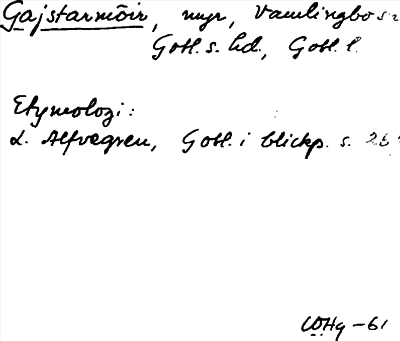 Gajstarmöir, myr, Vamlingbo s:n
Gotl. s. hd., Gotl. l.
Etymologi:
L. Alfvegren, Gotl. i blickp. s. 25
WHg -61